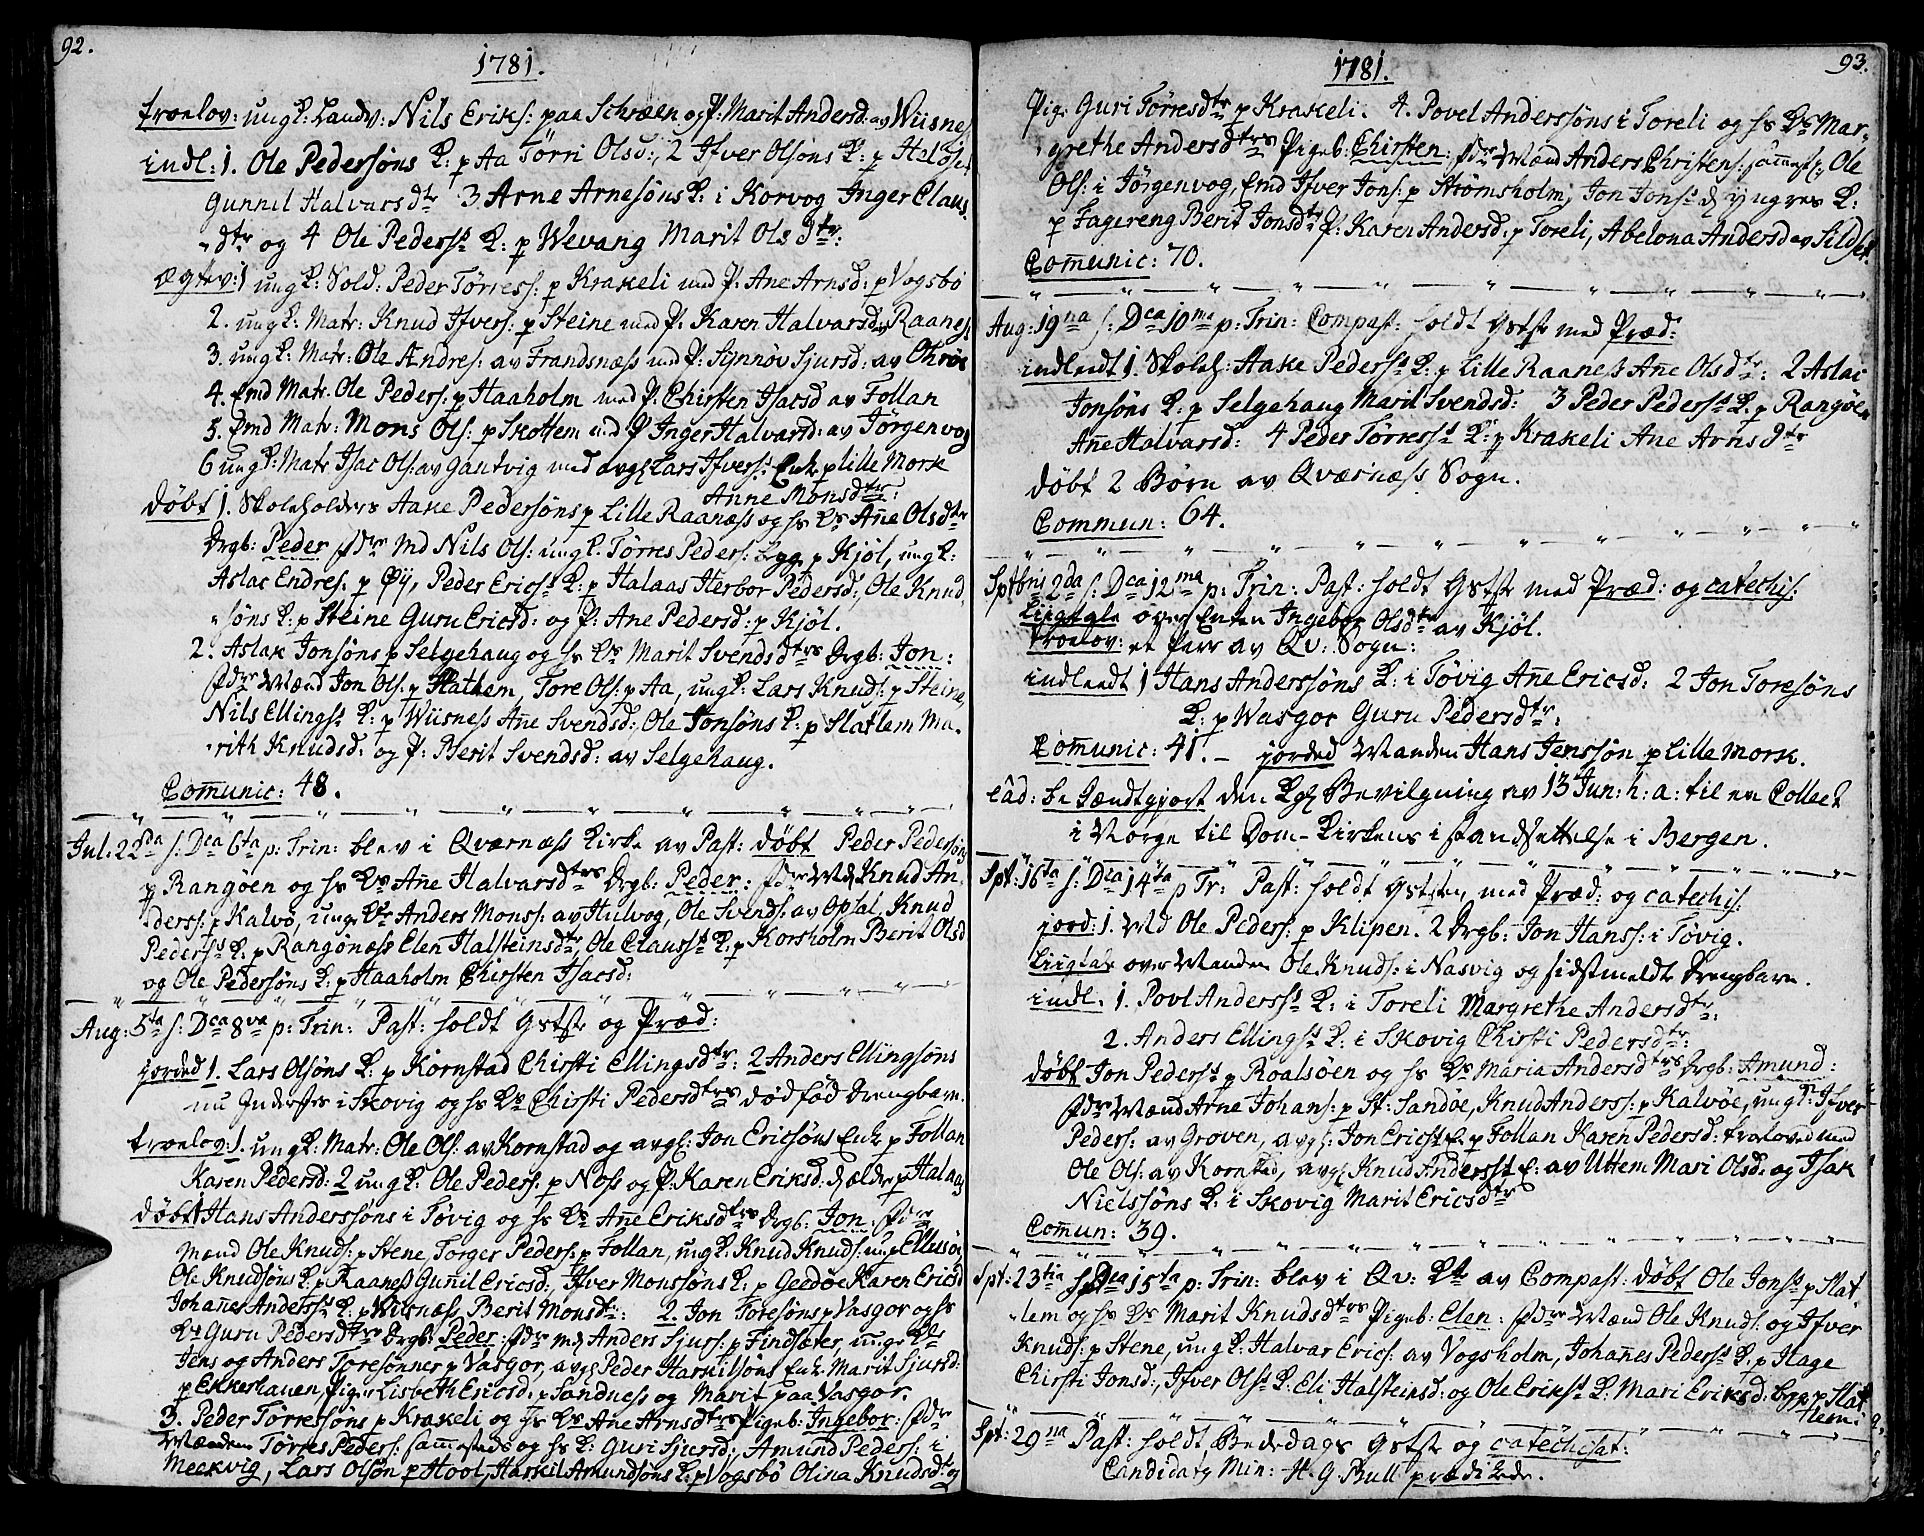 92.
1781.
troelov: ungK: Landv: Nils Eriks: paa Schræen og P: Marit Andersd: av Wiisnes
indl: 1. Ole Pedersøns K: p Aa Törri Olsd:, 2 Ifver Olsøns K: p
Gunnil Halvarsdtr 3 Arne Arnesøns K: i Korvog Inger Claus
"dtr og 4 Ole Pederss K: p Wevang Marit Olsdtr:
ægtev: 1 ungK: Sold: Peder Törress: p Krakeli med P: Ane Arnsd: p Vogsbø
2. ungK: Matr: Knud Ifvers: p Steine med P: Karen Halvarsd: Raanes
3. ungK: Matr: Ole Andres: av Frandsnæss med P: Synnøv Sjursd: av
4. Emd Matr. Ole Peders: p Haaholm med P: Chirsten Isacsd av Follan
5. Emd Matr: Mons Ols: p Skottem med P Inger Halvarsd: av Jörgenvog
6 ungK: Matr Isac Ols: av Gantvig med avgl Lars Ifvers: Enk p Lille Mork
Anne Monsdtr:
döbt 1. Skoleholders Aake Pedersøns p Lille Raanæss og hs Ks Añe Olsdtr
Drgb: Peder fdr Md Nils Ols: ungK. Törres Peders: bygg p Kjöl, ungK:
Aslac Endres: p Øÿ, Peder Ericss K: p Halaas Herbor Pedersd:, Ole Knud
"søns K: p Steine Guru Ericsd: og P: Ane Pedersd: p Kjöl.
2. Aslak Jonsøns p Selgehaug og hs Ks Marit Svendsdtrs Drgb: Jon:
fdr Mænd Jon Ols: p Hathem, Tore Ols: p Aa, ungK: Lars Knuds: p Steine,
Nils Ellingss K: p Wiisness Añe Svendsd: Ole Jonsøns K: p Slatlem Ma-
"rith Knudsd: og P: Berit Svendsd: av Selgehaug.
Comunic: 48.
Jul: 22da s: Dca 6ta p: Trin: blev i Qværnæss Kirke av Past: döbt Peder Pedersøns
p Rangöen og hs Ks Añe Halvarsdtrs Drgb: Peder: fdr Md Knud An
"derss: p Kalvö, ungK: Anders Monss: av Hulvog, Ole Svends: av Opsal, Knud
Pederss K: p Rangönæss Elen Halsteinsdtr, Ole Clausss K: p Korsholm Berit Olsd
og Ole Pedersøns K: p Haaholm Chirsten Isacsd:
Aug: 5ta s: Dca 8va p: Trin: Past: holdt Gstste og Præd:
jorded 1. Lars Olsøns K: p Kornstad Chirsti Ellingsdtr: 2 Anders Ellingsøns
nu Inderstes i Skovig og hs Ks Chirsti Pedersdtrs dødföd Drengbarn.
troelov: 1. ungK: Matr: Ole Ols: av Kornstad og avgl: Jon Ericsøns Enk: p Follan
Karen Pedersd: 2 ungK: Ole Peders: p Noss og P: Karen Eriksd: d ældr p Halaas
döbt 1 Hans Anderssøns i Tövig og hs Ks Añe Eriksdtrs Drgb: Jon: fdr
Mænd Ole Knuds: p Stene, Torger Peders: p Follan, ungK: Knud Knuds: p Ellesø
Ole Knudsøns K: p Raaness Gunil Ericsd:, Ifver Monssøns K: p Geedøe Karen Ericsd
Johañes Anderss K: p Wiisnæss Berit Monsdtr: 2. Jon Toresøns p Vasgor og hs
Ks Guru Pedersdtrs Drgb: Peder: fdr md Anders Sjurs: p Findsæter, ungK
Jens og Anders Toresønner p Vasgor, avgl Peder Harkilsøns Enk: Marit Sjursd:
p Ekkerhauen, Pig: Lisbeth Ericsd: p Sandness og Marit paa Vasgor.
3. Peder Törresøns p Krakeli og hs Ks Ane Arnsdtrs Pigeb: Ingebor: fdr
Mændene Törres Peders: sammestæds og hs K: Guri Sjursd:, Amund Peders: i
Meekvig, Lars Olsøn p Hool, Harkil Amundsøns K: p Vogsbö Olina Knudsdtr og
93.
1781.
Pig: Guri Törresdtr p Krakeli. 4. Povel Anderssøns i Toreli og hs Ks Mar-
"grethe Andersdtrs Pigeb: Chirsten: fdr Mænd Anders Christens: sammests: Ole
Ols: i Jörgenvog, Emd Ifver Jons: p Strömsholm, Jon Jonss d yngres K:
p Fagereng Berit Jonsdtr P: Karen Andersd: p Toreli, Abelona Andersd av Sildset.
Comunic: 70.
Aug: 19na s: Dca 10ma p: Trin: Compast: holdt Gstste med Præd:
indleedt 1. Skoleh: Aake Pederss K: p Lille Raaness Añe Olsdtr: 2 Aslac
Jonsøns K: p Selgehaug Marit Svendsd: 3 Peder Pederss K: p Rangöen
Añe Halvarsd: 4 Peder Törress K: p Krakeli Ane Arnsdtr
döbt 2 Börn av Qværnæss Sogn.
Commun: 64.
Sptbris 2da s: Dca 12ma p: Trin: Past: holdt Gstste med Præd: og catechis:
Liigtale over Enken Ingebor Olsdtr av Kjöl.
troelov: et Parr av Qv: Sogn:
indleedt 1 Hans Anderssøns K: i Tövig Añe Ericsd: 2 Jon Toresøns
K: p Wasgor Guru Pedersdtr:
Comunic: 41. – jorded Manden Hans Jenssøn p Lille Mork.
eâd: bekiændtgjort den Kgl Bevilgning av 13 Jun: h: a: til en Collect
i Norge til Dom-Kirkens istandsettelse i Bergen.
Spt: 16ta s: Dca 14ta p Tr: Past: holdt Gstste, med Præd: og catechis:
jord: 1. Md Ole Peders: p Klipen. 2 Drgb: Jon Hanss: i Tövig.
Liigtale over Manden Ole Knuds: i Nasvig og sidstmeldte Drengbarn.
indl: 1. Povl Anderss K: i Toreli Margrethe Andersdtr:
2. Anders Ellingss K: i Skovig Chirsti Pedersdtr:
döbt Jon Pederss p Roalsöen og hs Ks Maria Andersdtrs Drgb: Amund:
fdr Mænd Arne Johans: p St: Sandöe, Knud Anderss: p Kalvöe, ungK: Ifver
Peders: av Groven, avgl: Jon Ericss E: p Follan Karen Pedersd: troloved med
Ole Ols: av Kornstad, avgl Knud Anderss E: av Uttem Mari Olsd: og Isak
Nielssøns K: i Skovig Marit Ericsdtr
Comun: 39.
Spt: 23tia s: Dca 15ta p: Trin: blev i Qv: Kk av Compast: döbt Ole Jonss p Slat
"lem og hs Ks Marit Knudsdtrs Pigeb: Elen: fdr Mænd Ole Knuds: og Ifver
Knuds: p Stene, ungK: Halvar Erics: av Vogsholm, Johañes Pederss K: p Hage
Chirsti Jonsd:, Ifver Olss K: Eli Halsteinsd: og Ole Erikss K: Mari Eriksd: bygg p Slat
"lem:
Spt: 29na Past: holdt Bededags Gstste og catechisat:
Candidatg Min: H. G Bull prædikede.